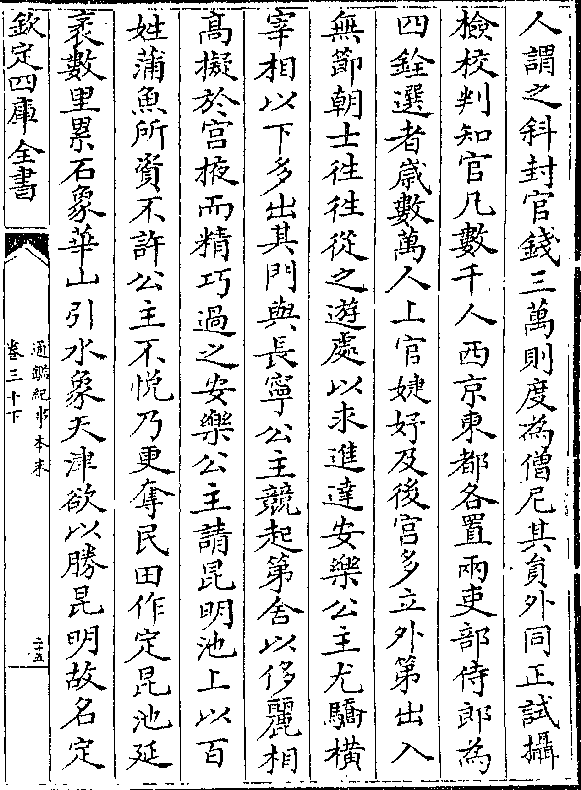 人謂之斜封官錢三萬則度為僧尼其員外同正試攝
檢校判知官凡數千人西京東都各置兩吏部侍郎為
四銓選者歲數萬人上官婕妤及後宮多立外第出入
無節朝士往往從之遊處以求進達安樂公主尤驕橫
宰相以下多出其門與長寧公主競起第舍以侈麗相
高擬於宮掖而精巧過之安樂公主請昆明池上以百
姓蒲魚所資不許公主不悅乃更奪民田作定昆池延
袤數里累石象華山引水象天津欲以勝昆明故名定
欽定四庫全書
通鑑紀事本末
卷三十下
二十五